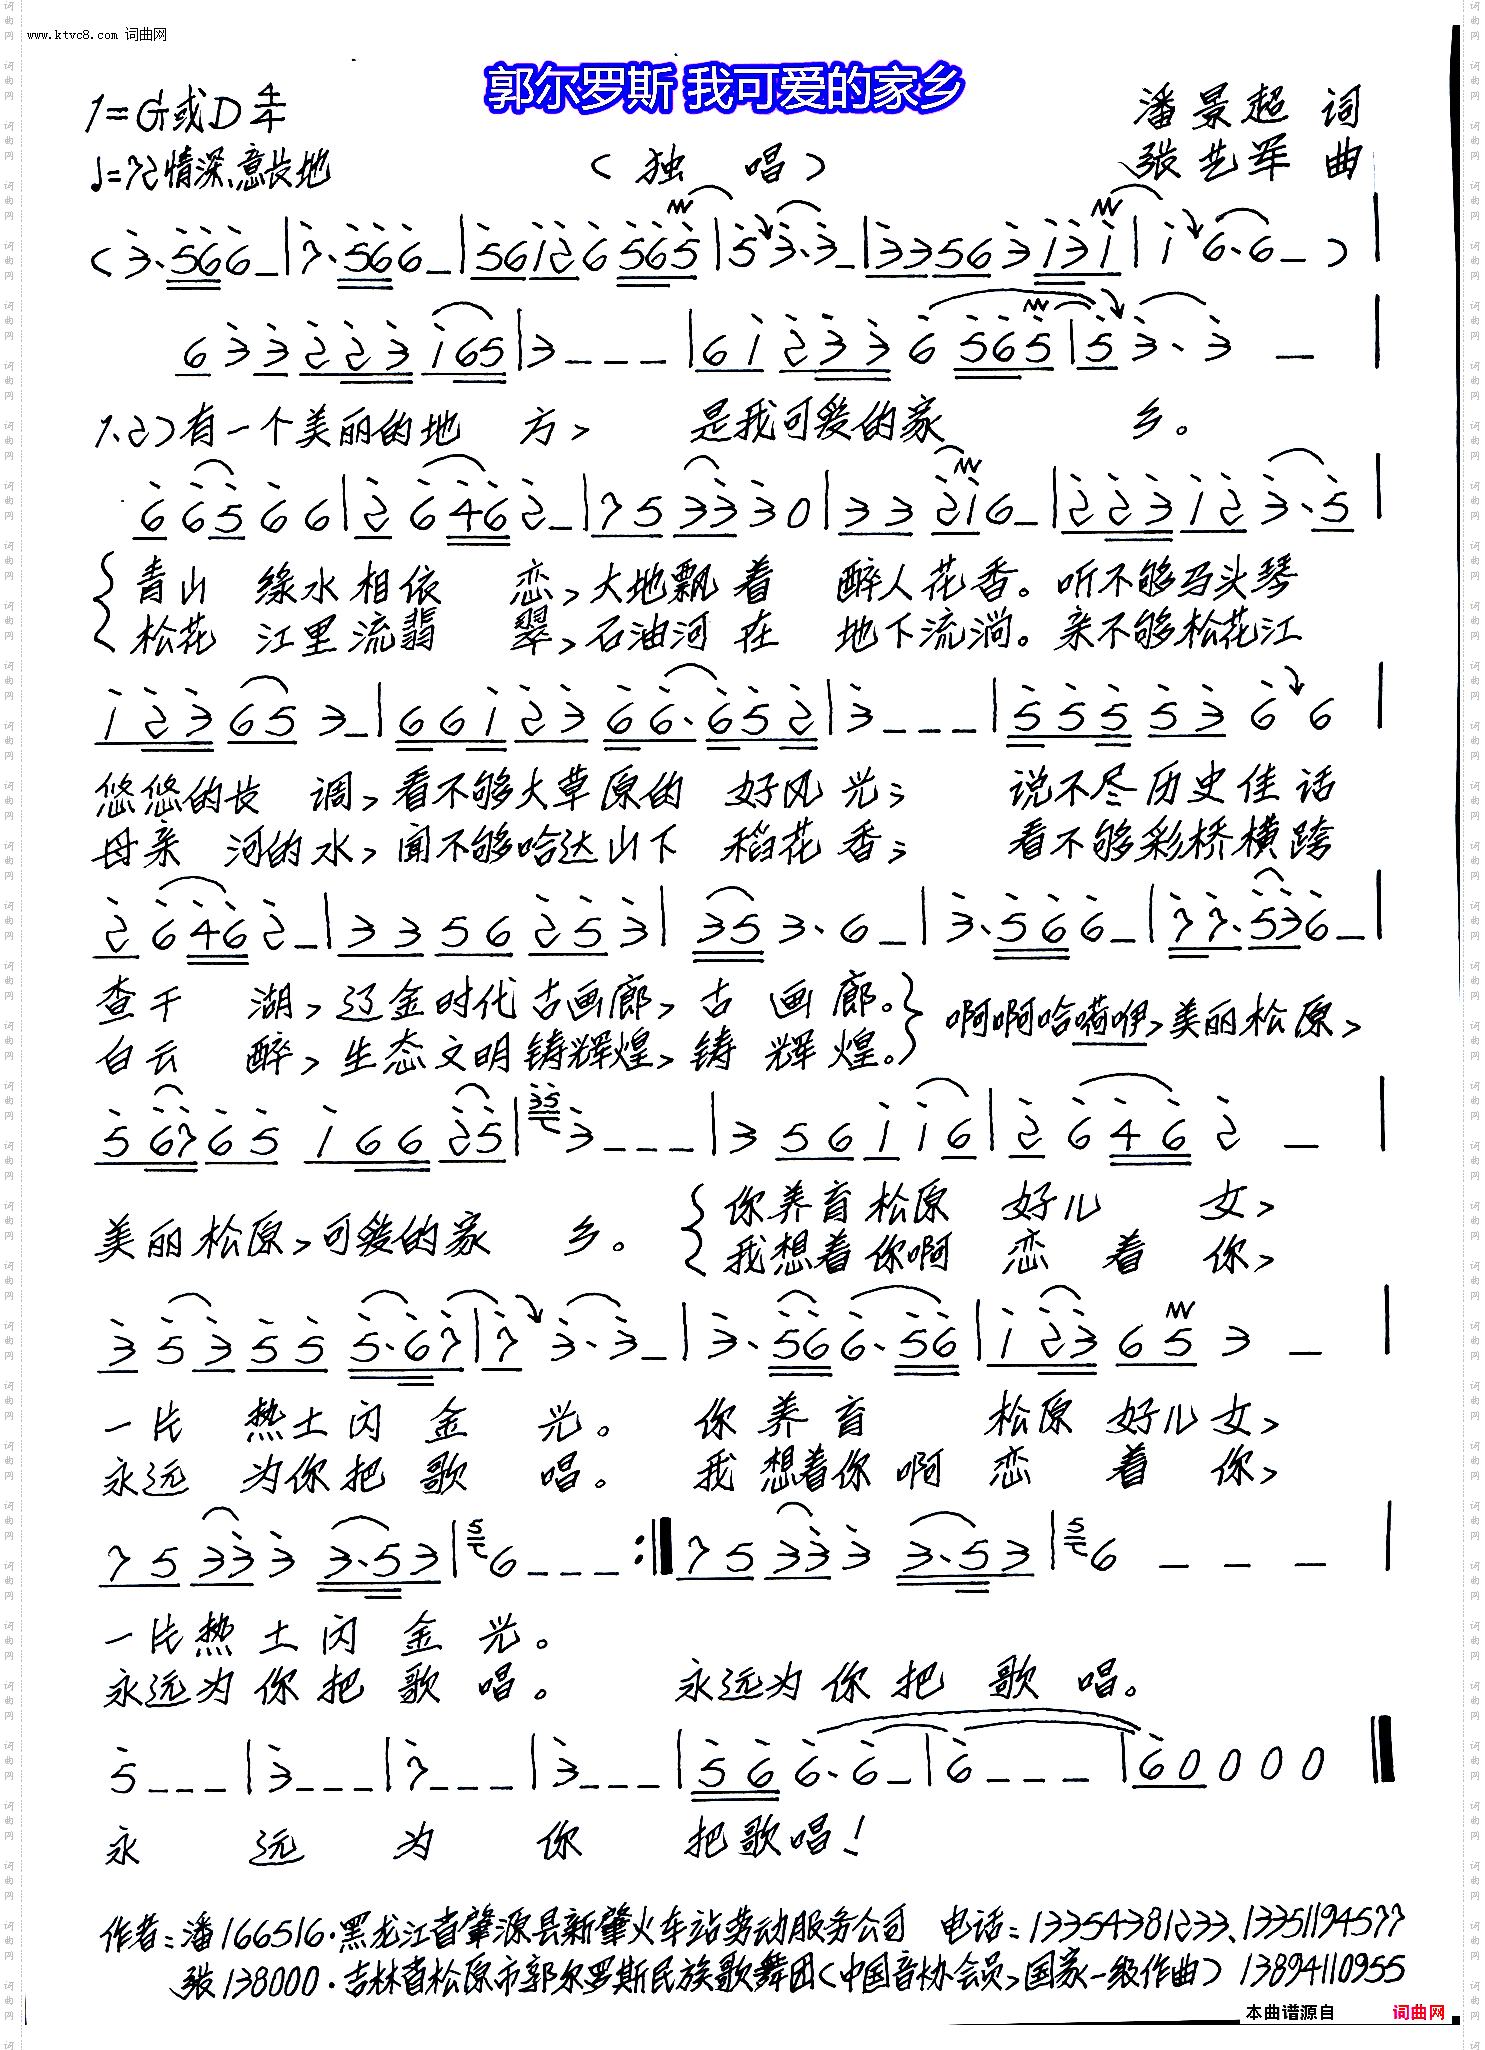 www.ktvc8.com 词曲网
郭尔罗斯 我可爱的家乡
1=G或D 4/4
潘景超 词
♩=72 情深、意长地
(独 唱)
张艺军 曲
(3·566—|7·566—|56126565|53·3—|33563131|16·6—)|
633223165|3———|612336565|53·3—|
1、2)有一个美丽的地 方, 是我可爱的家 乡。
66566|26462—|753330|33216—|223123·5|
青山 缘水相依 恋,大地飘着 醉人花香。听不够马头琴
松花 江里流翡 翠,石油河在 地下流淌。亲不够松花江
123653—|6612366·652|3———|5555366|
悠悠的长 调,看不够大草原的 好风光; 说不尽历史佳话
母亲 河的水,闻不够哈达山下 稻花香; 看不够彩桥横跨
26462—|3356253|353·6—|3·566—|77·536—|
查干 湖,辽金时代古画廊,古 画廊。
啊啊哈嗬咿,美丽松原,
白云 醉,生态文明铸辉煌,铸 辉煌。
5676516625|353———|356116|26462—|
你养育松原 好儿 女,
美丽松原,可爱的家 乡。
我想着你啊 恋着你,
353555·67|73·3—|3·566·56|123653—|
一片 热土闪金光。你养育 松原好儿女,
永远 为你把歌唱。我想着你啊 恋着你,
753333·53|56———:‖753333·53|56———|
一片热土闪金光。
永远为你把歌唱。 永远为你把歌唱。
5———|3———|7———|3———|566·6—|6———|60000‖
永 远 为 你 把歌唱!
作者:潘166516·黑龙江省肇源县新肇火车站劳动服务公司 电话:13354381233、13351194577
张138000·吉林省松原市郭尔罗斯民族歌舞团(中国音协会员,国家一级作曲) 13894110955
本曲谱源自 词曲网